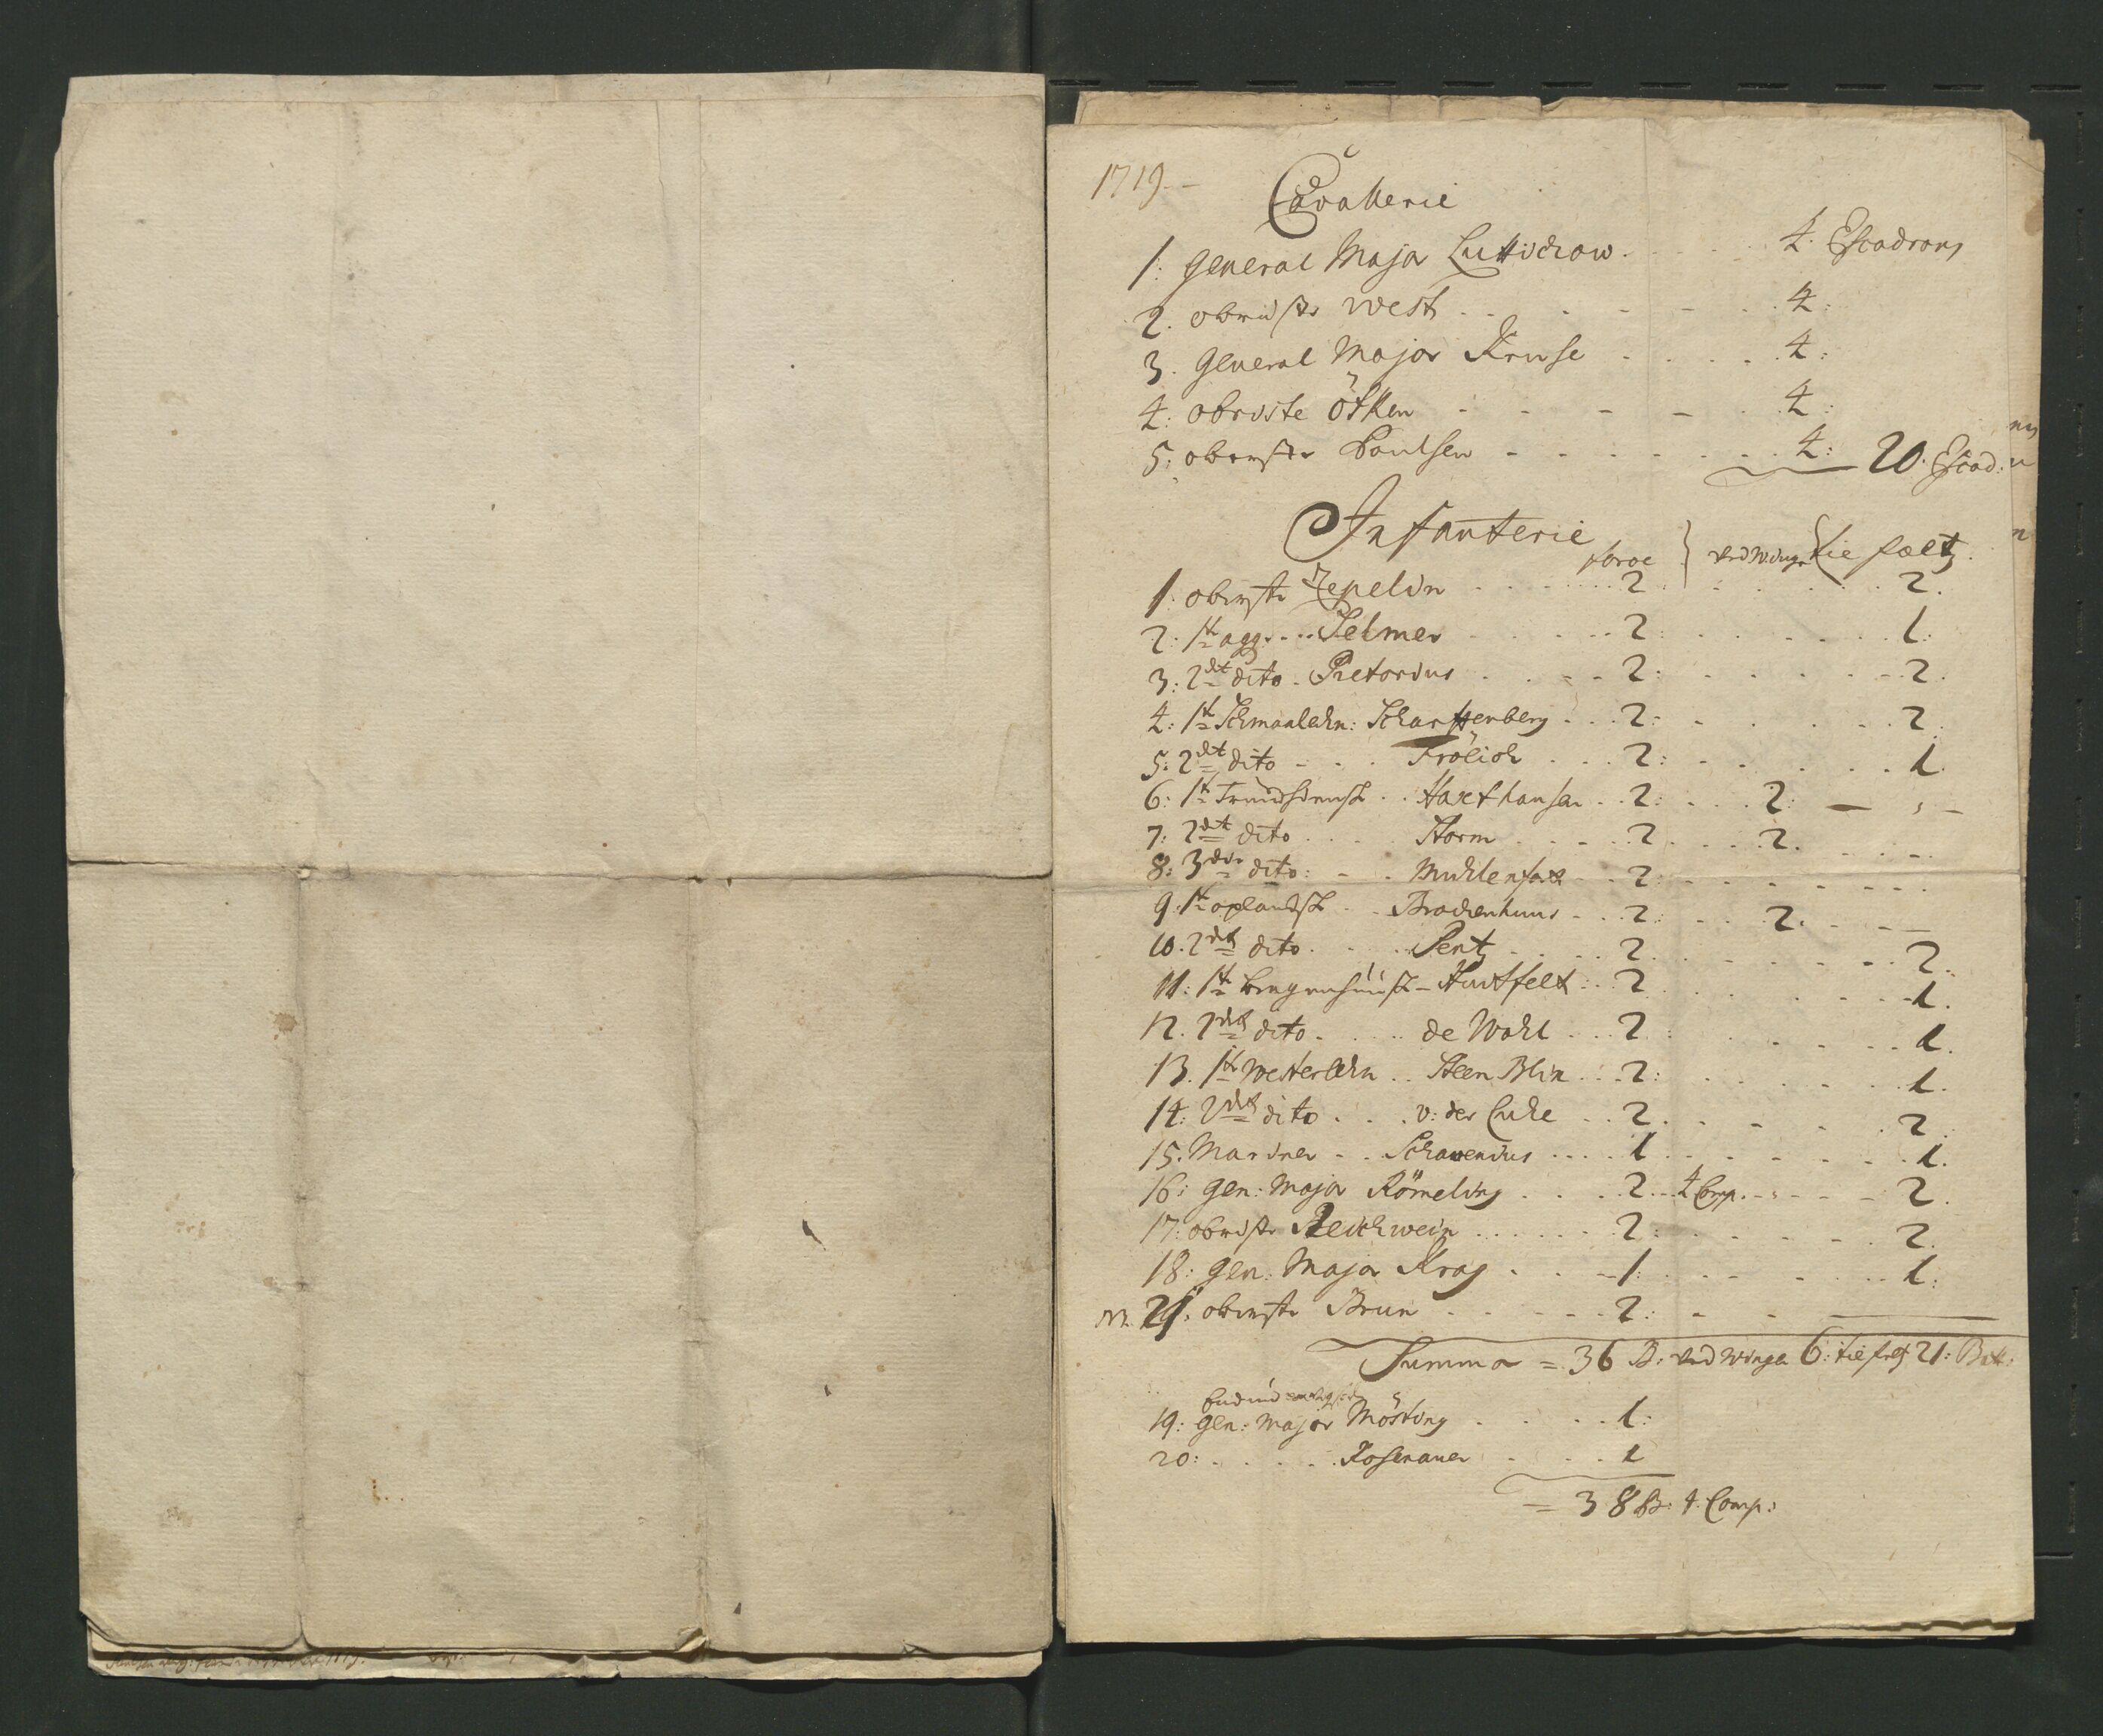 1719
Cavallerie
1: General Major Luttichow. 4. Escadrons
2. obriste West 4:
3. General Major Kruse 4:
4: obriste ötken 4:
5: oberste Poulsen 4: 20. Escad:
Infanterie
ved Winger tie felt
1: oberste Zepelin 2 2.
2: 1te agg. Selmer 2: 1:
3: 2det dito Pretorius 2: 2.
4: 1te Schmaalehn: Scharffenberg 2: 2.
5: 2det dito Frölich 2: 1.
6: 1te Trundhiemsk Haxthausen 2: 2:
7: 2det dito Storm 2 2.
8: 3die dito: Muhlenfort 2:
9. 1te oplandsk Brockenhuus 2: 2.
10. 2det dito Pentz 2 2.
11: 1te Hurtfelt 2 1.
12. 2det dito de Wohl 2 1.
13. 1te Westerlehn Steen Blix 2: 1.
14: 2det dito v: der Luhe 2 2.
15. Mariner Schawenius 1 1.
16: Gen: Major Römeling 2 4 Comp. 2.
17: obriste Reichwein 2: 2.
18: Gen: Major Krag 1: 1:
21: oberste Brun 2:
Summa = 36 B: ved Winger 6: tie felt 21: Bat:
19: Gen: Major Mösting 1:
20: Rosenauer 1
= 38 B: 4. Comp: